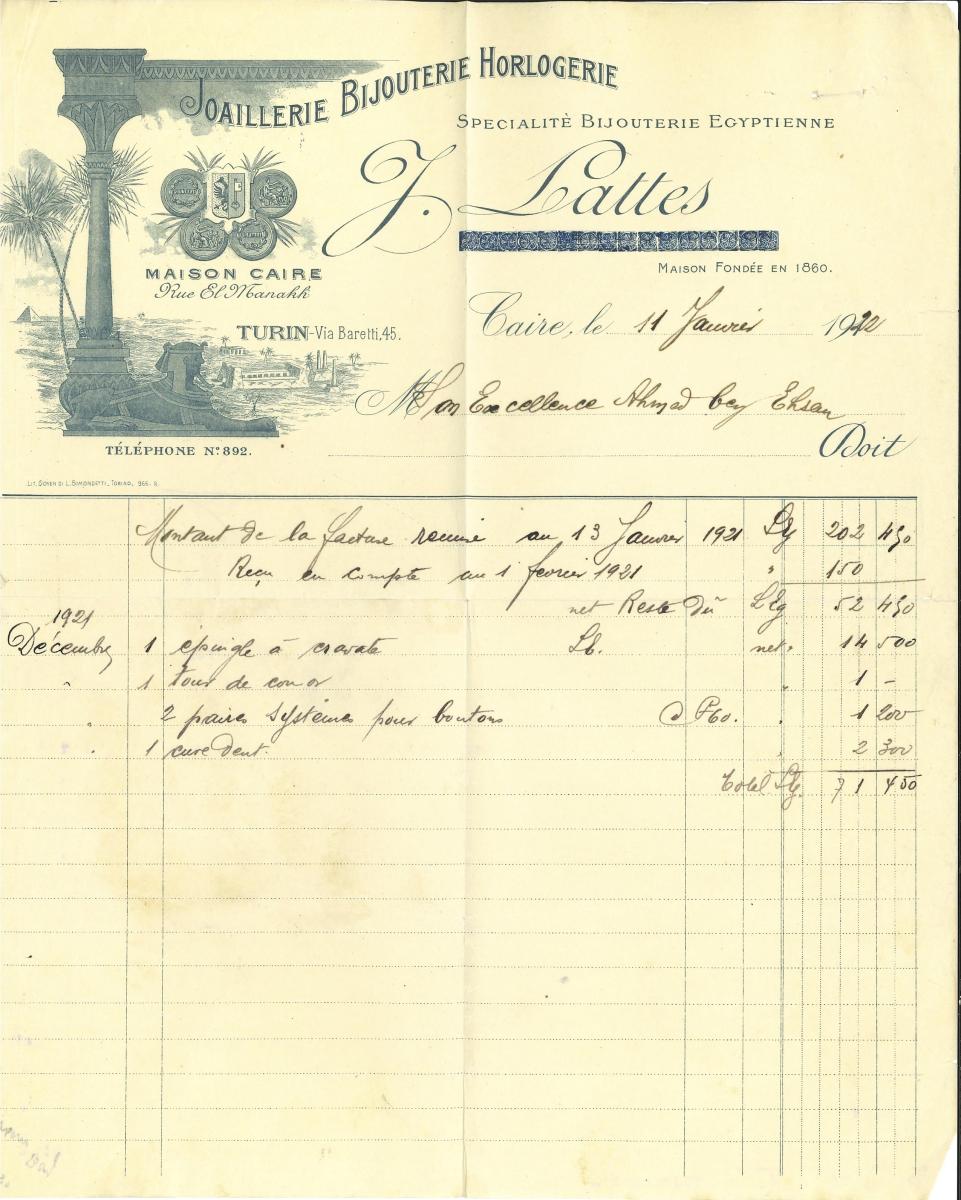 JOAILLERIE BIJOUTERIE HORLOGERIE
SPECIALITÈ BIJOUTERIE EGYPTIENNE
J. Lattes
MAISON FONDÉE EN 1860.
MAISON CAIRE
Rue El Manakh
TURIN-Via Baretti, 45.
TÉLÉPHONE N° 892.
LIT. DOYEN DI L. SIMONDETTI - TORINO, 966. S.
Caire, le 11 Janvier 1922
M Son Excellence Ahmad bey Ehsan
Doit
Montant de la facture remise au 13 Janvier 1921 LEg 202 450
Reçu en compte au 1 fevrier 1921 " 150
net Reste dû LEg 52 450
1921
Décembre 1 épingle à cravate net " 14 500
" 1 tour de cou or " 1 -
" 2 paires systèmes pour boutons P60. " 1 200
" 1 cure dent. " 2 300
Total LEg. 71 450